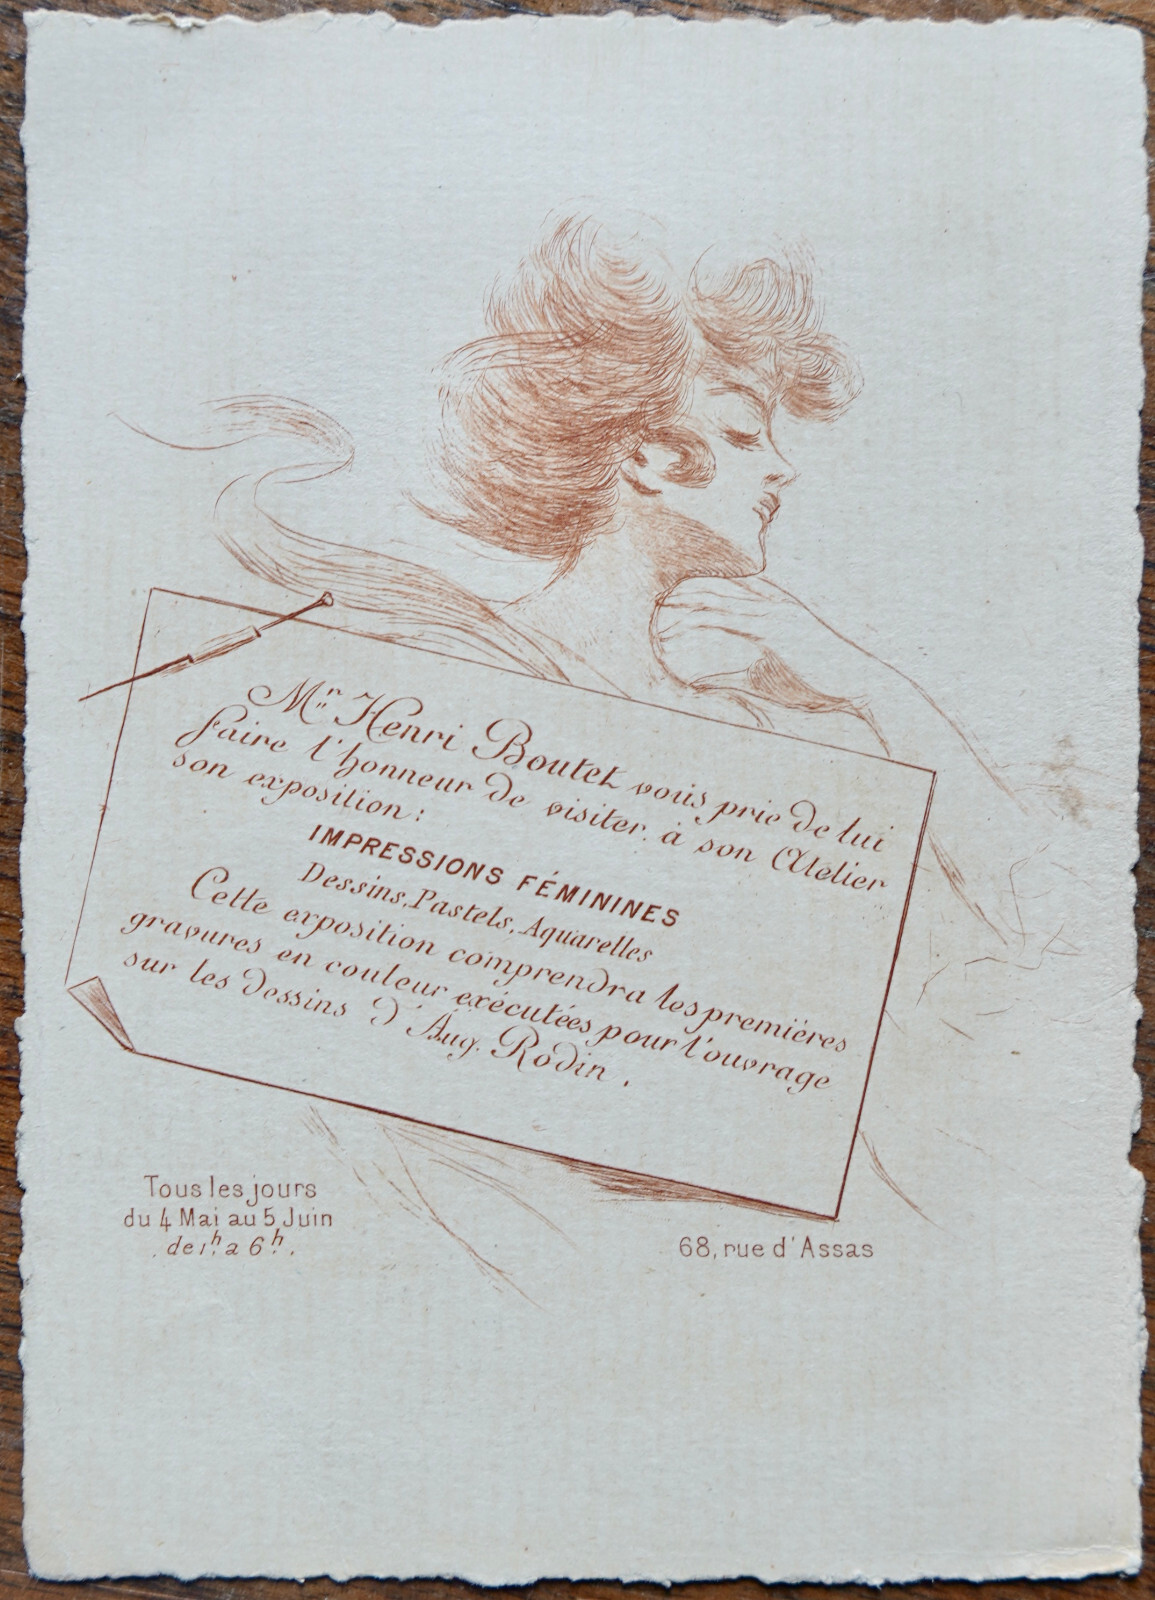 Mr Henri Boutet vous prie de lui
faire l'honneur de visiter à son Atelier
son exposition :
IMPRESSIONS FÉMININES
Dessins, Pastels, Aquarelles
Cette exposition comprendra les premières
gravures en couleur exécutées pour l'ouvrage
sur les dessins d'Aug. Rodin .
Tous les jours
du 4 Mai au 5 Juin
de 1h. a 6h.
68, rue d'Assas